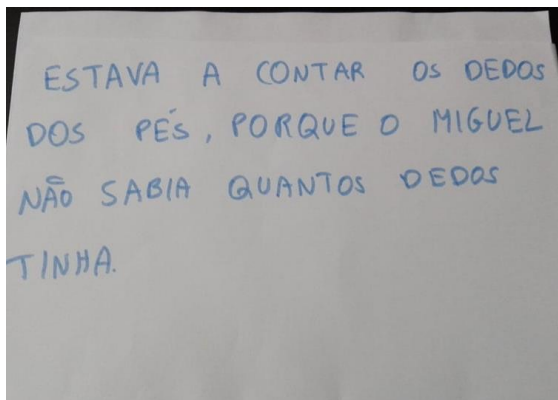 ESTAVA A CONTAR OS DEDOS
DOS PÉS, PORQUE O MIGUEL
NÃO SABIA QUANTOS DEDOS
TINHA.